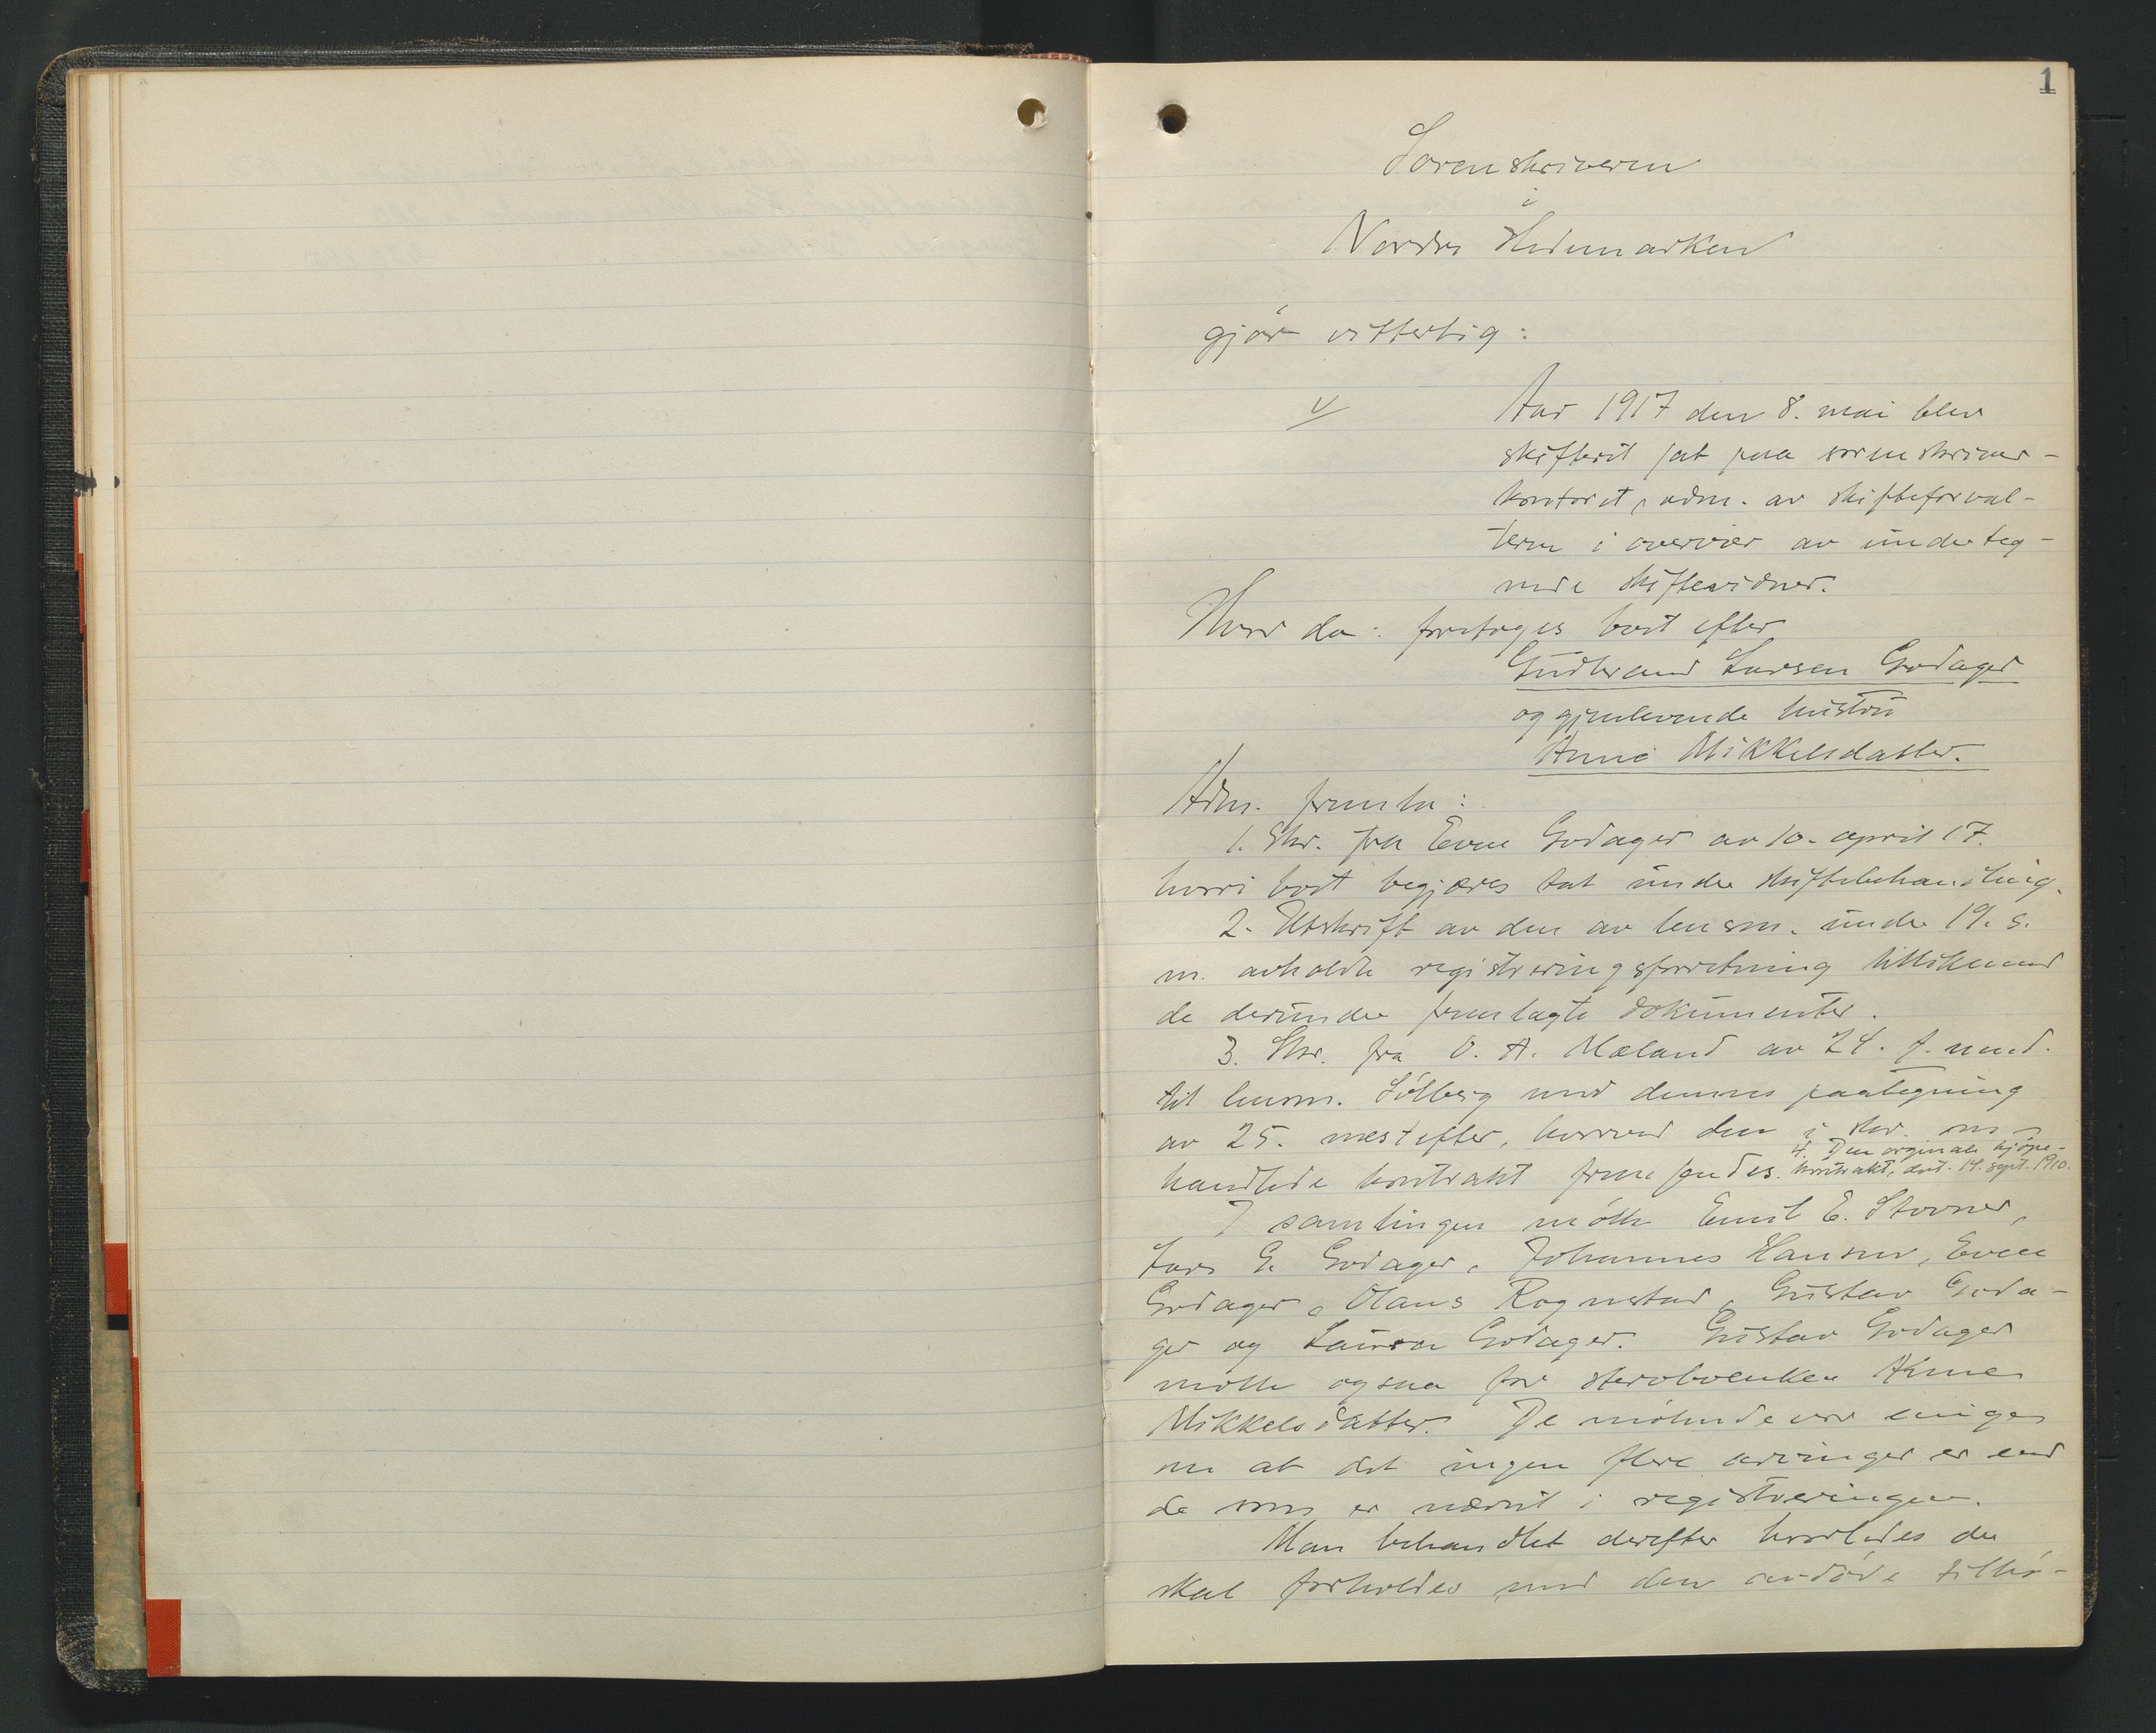 1
Sorenskriveren
i
Nordre Hedemarken
gjør vitterlig:
Aar 1917 den 8. mai blev
skifteret sat paa sorenskriver-
kontoret, adm. av skifteforval-
teren i overvær av underteg-
nede skiftevidner.
Hvor da: foretoges boet efter
Gudbrand Larsen Godager
og gjenlevende hustru
Anne Mikkelsdatter.
Adm. fremla:
1. Skr. fra Even Godager av 10. april 17.
hvori boet begjæres tat under skiftebehandling.
2. Utskrift av den av lensm. under 19. s.
m. avholdte registreringsforretning tillikemed
de derunder fremlagte dokumenter.
3. Skr. fra O. A. Mæland av 24. f. mnd.
til lensm. Sølberg med dennes paategning
av 25. næstefter, hvorved den i skr. om-
handlede kontrakt fremsendes. 4. Den orginale kjøpe-
kontrakt, dat. 14. sept. 1910.
I samlingen møtte Emil E. Stovner,
Lars G. Godager, Johannes Hansen, Even
Godager, Olaus Rognstad, Gustav Goda-
ger og Laura Godager. Gustav Godager
møtte ogsaa for sterboenken Anne
Mikkelsdatter. De møtende var enige
om at det ingen flere arvinger er end
de som er nævnt i registreringen.
Man behandlet derefter hvorledes der
skal forholdes med den avdøde tilhø-